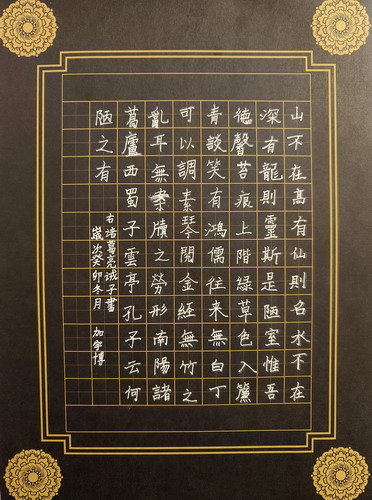 山不在高有仙則名水不在
深有龍則靈斯是陋室惟吾
德馨苔痕上階綠草色入簾
青談笑有鴻儒往来無白丁
可以調素琴閱金經無竹之
亂耳無案牘之勞形南陽諸
葛廬西蜀子雲亭孔子云何
陋之有
右诸葛亮诫子書
歲次癸卯冬月 加宇博